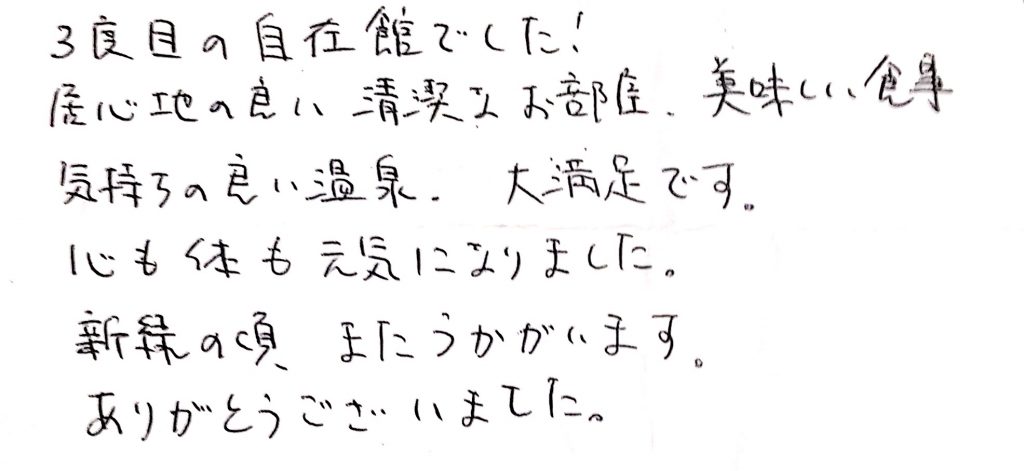 3度目の自在館でした!
居心地の良い 清潔なお部屋、美味しい食事
気持ちの良い温泉. 大満足です。
心も体も元気になりました。
新緑の頃、またうかがいます。
ありがとうございました。